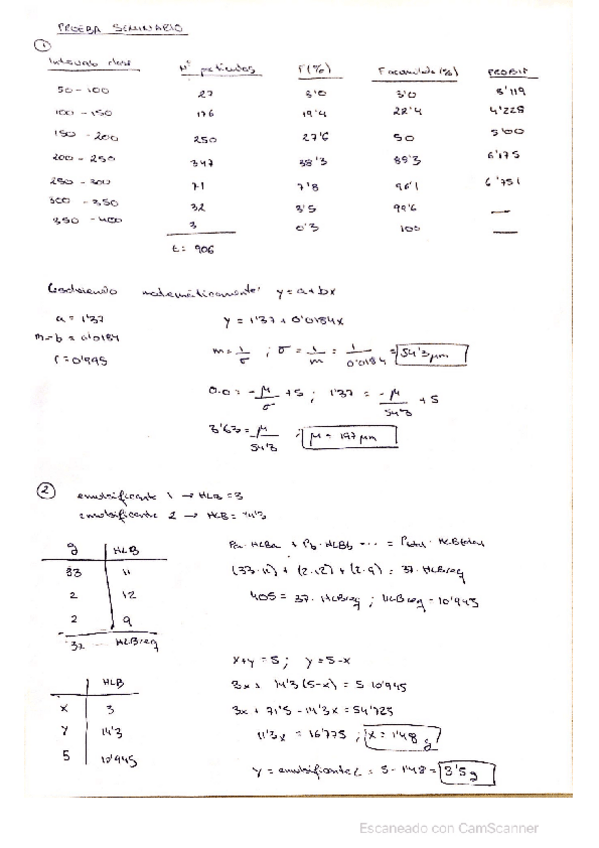 PRUEBA SEMINARIO
①
Intervalo clase Nº partículas F(%) F acumulada (%) PROBIT
50 - 100 27 3'0 3'0 3'119
100 - 150 176 19'4 22'4 4'228
150 - 200 250 27'6 50 5'00
200 - 250 347 38'3 88'3 6'175
250 - 300 71 7'8 96'1 6'751
300 - 350 32 3'5 99'6 —
350 - 400 3 0'3 100 —
t = 906
matemáticamente: y = a + bx
a = 1'37 y = 1'37 + 0'0184x
m = b = 0'0184 m = 1/σ ; σ = 1/m = 1/0'0184 = 54'3 µm
r = 0'995
= -µ/σ + 5 ; 1'37 = -µ/54'3 + 5
3'63 = µ/54'3 ; µ = 197 µm
②
emulsificante 1 → HLB = 3
emulsificante 2 → HLB = 14'3
g HLB
33 11
2 12
2 9
37 HLBreq
Pa · HLBa + Pb · HLBb ... = Ptotal · HLBtotal
(33·11) + (2·12) + (2·9) = 37 · HLBreq
405 = 37 · HLBreq ; HLBreq = 10'945
HLB
x 3
y 14'3
5 10'945
x + y = 5 ; y = 5 - x
3x + 14'3 (5-x) = 5 · 10'945
3x + 71'5 - 14'3x = 54'725
11'3x = 16'775 ; x = 1'48 g
y = emulsificante 2 = 5 - 1'48 = 3'5 g
Escaneado con CamScanner